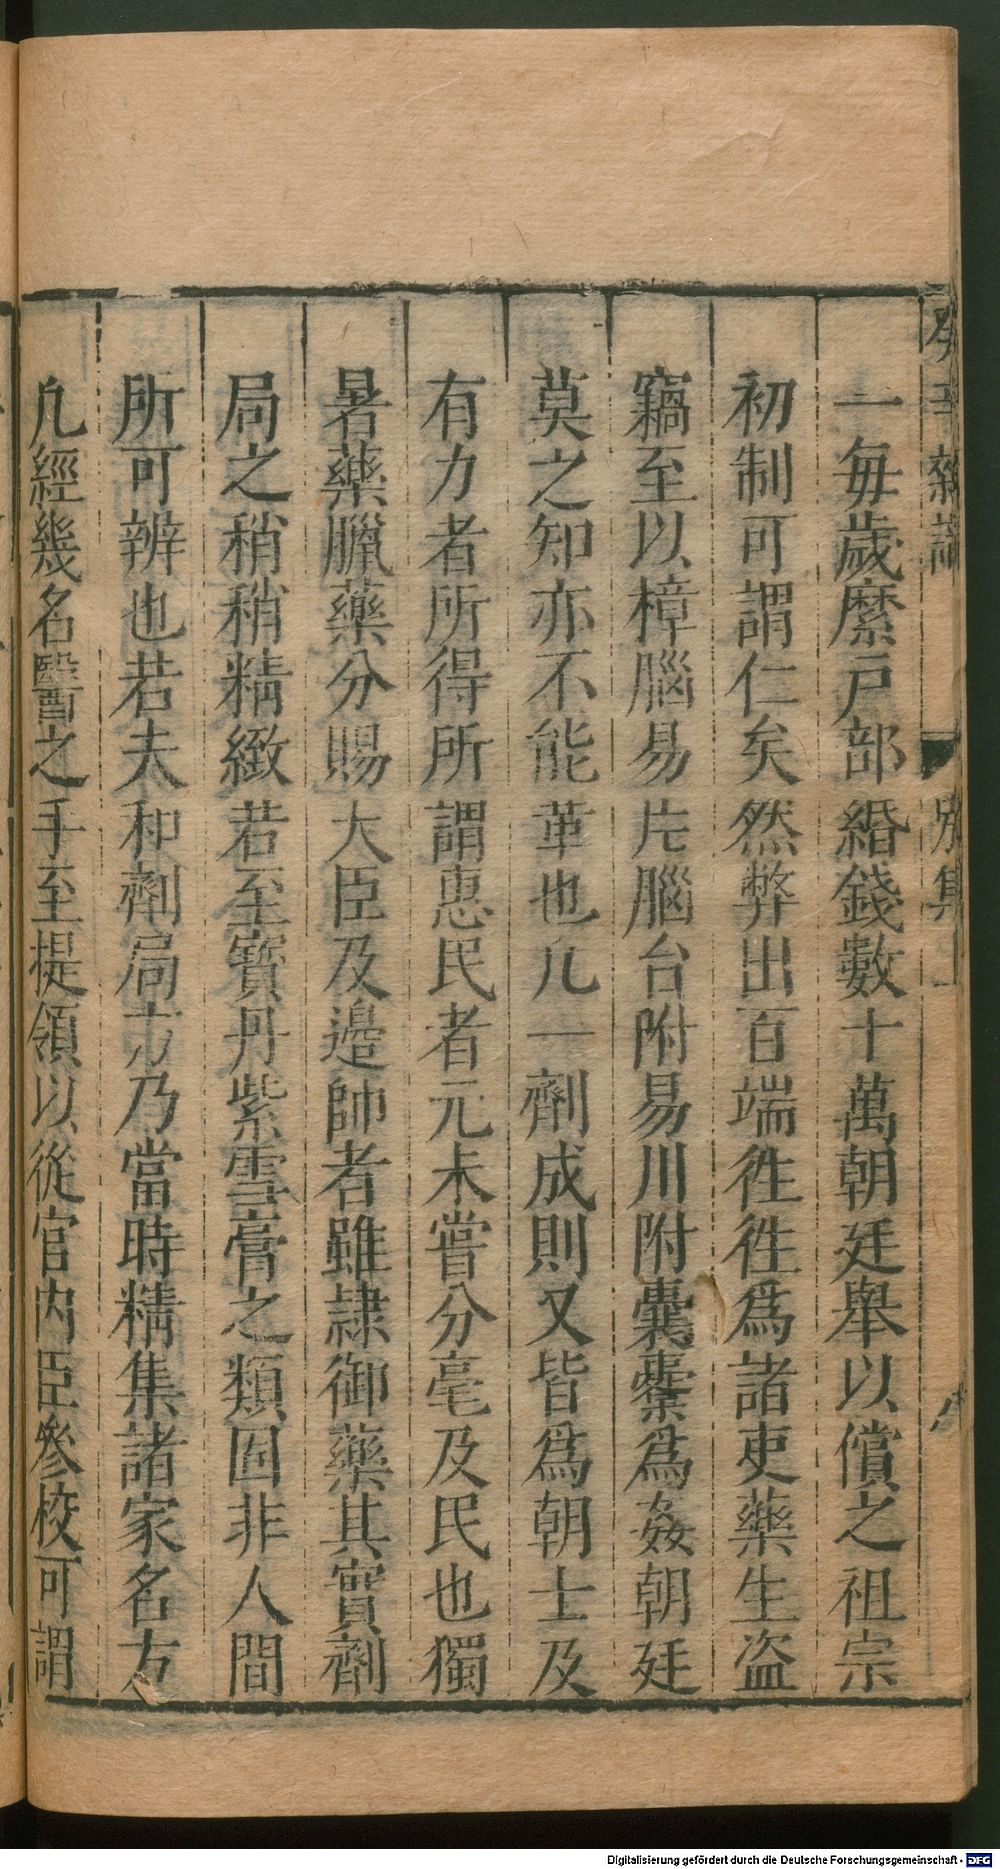 癸辛雜識 別集上
一每歲縻戸部緡錢數十萬朝廷舉以償之祖宗
初制可謂仁矣然弊出百端徃徃爲諸吏藥生盜
竊至以樟腦易片腦台附易川附囊橐爲姦朝廷
莫之知亦不能革也凡一劑成則又皆爲朝士及
有力者所得所謂惠民者元未嘗分毫及民也獨
暑藥臘藥分賜大臣及邊帥者雖隷御藥其實劑
局之稍稍精緻若至寶丹紫雪膏之類固非人間
所可辨也若夫和劑局方乃當時精集諸家名方
凡經幾名醫之手至提領以從官内臣參校可謂
Digitalisierung gefördert durch die Deutsche Forschungsgemeinschaft - DFG